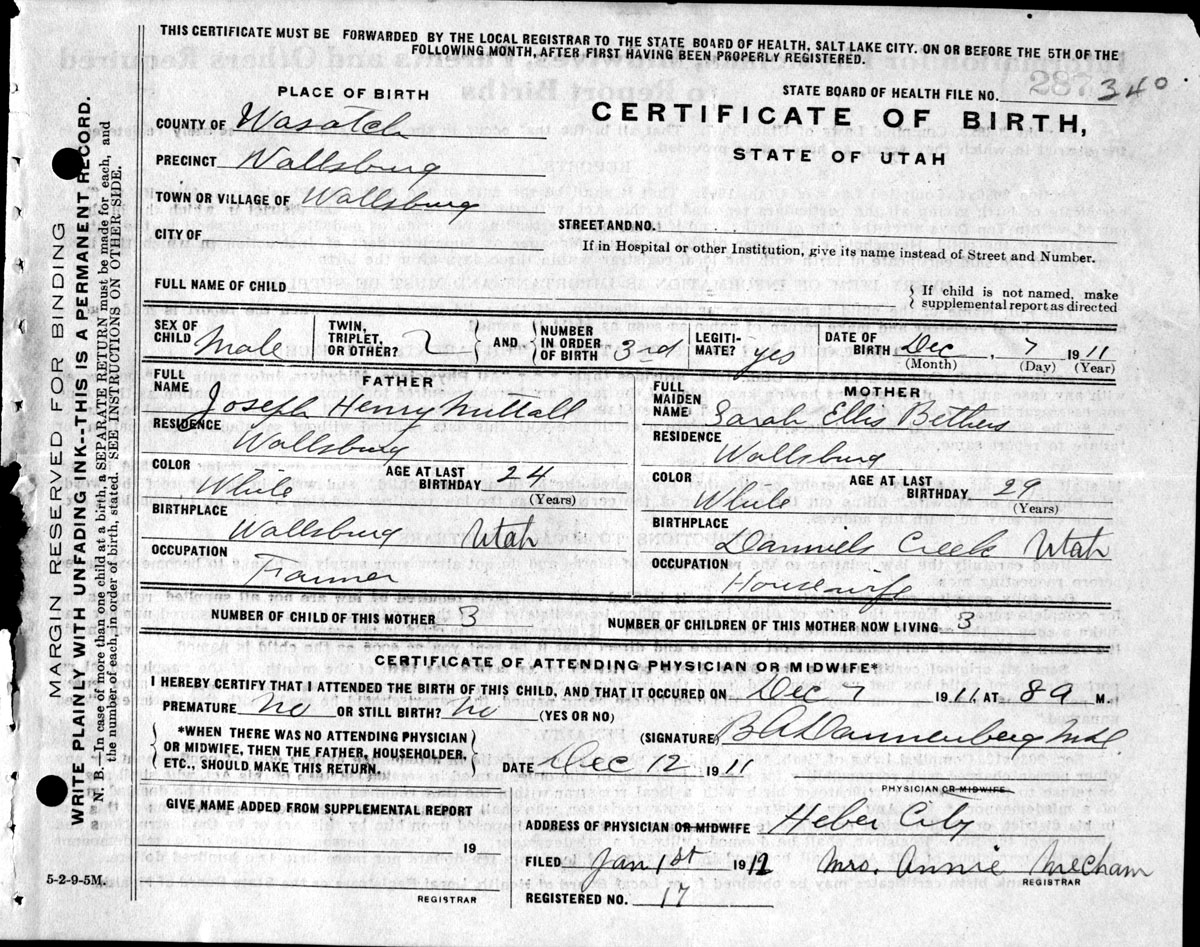 THIS CERTIFICATE MUST BE FORWARDED BY THE LOCAL REGISTRAR TO THE STATE BOARD OF HEALTH, SALT LAKE CITY, ON OR BEFORE THE 5TH OF THE
FOLLOWING MONTH, AFTER FIRST HAVING BEEN PROPERLY REGISTERED.
STATE BOARD OF HEALTH FILE NO. 287 340
PLACE OF BIRTH
CERTIFICATE OF BIRTH,
STATE OF UTAH
COUNTY OF Wasatch
PRECINCT Wallsburg
TOWN OR VILLAGE OF Wallsburg
CITY OF
STREET AND NO.
If in Hospital or other Institution, give its name instead of Street and Number.
FULL NAME OF CHILD
If child is not named, make
supplemental report as directed
SEX OF CHILD Male TWIN, TRIPLET, OR OTHER? AND NUMBER IN ORDER OF BIRTH 3rd LEGITI-MATE? yes DATE OF BIRTH Dec, 7 1911
(Month) (Day) (Year)
FATHER
FULL NAME Joseph Henry Nuttall
RESIDENCE Wallsburg
COLOR White AGE AT LAST BIRTHDAY 24
(Years)
BIRTHPLACE Wallsburg Utah
OCCUPATION Farmer
MOTHER
FULL MAIDEN NAME Sarah Ellis Bethers
RESIDENCE Wallsburg
COLOR White AGE AT LAST BIRTHDAY 29
(Years)
BIRTHPLACE Daniels Creek Utah
OCCUPATION Housewife
NUMBER OF CHILD OF THIS MOTHER 3 NUMBER OF CHILDREN OF THIS MOTHER NOW LIVING 3
CERTIFICATE OF ATTENDING PHYSICIAN OR MIDWIFE*
I HEREBY CERTIFY THAT I ATTENDED THE BIRTH OF THIS CHILD, AND THAT IT OCCURED ON Dec 7 1911, AT 8 a M.
PREMATURE No OR STILL BIRTH? No (YES OR NO)
*WHEN THERE WAS NO ATTENDING PHYSICIAN
OR MIDWIFE, THEN THE FATHER, HOUSEHOLDER,
ETC., SHOULD MAKE THIS RETURN.
(SIGNATURE) Dannenberg
DATE Dec 12 1911
PHYSICIAN OR MIDWIFE
GIVE NAME ADDED FROM SUPPLEMENTAL REPORT
19
REGISTRAR
ADDRESS OF PHYSICIAN OR MIDWIFE Heber City
FILED Jan 1st 1912 Mrs. Annie Mecham
REGISTRAR
REGISTERED NO. 17
5-2-9-5M
MARGIN RESERVED FOR BINDING
WRITE PLAINLY WITH UNFADING INK--THIS IS A PERMANENT RECORD.
N. B.—In case of more than one child at a birth, a SEPARATE RETURN must be made for each, and
the number of each, in order of birth, stated. SEE INSTRUCTIONS ON OTHER SIDE.